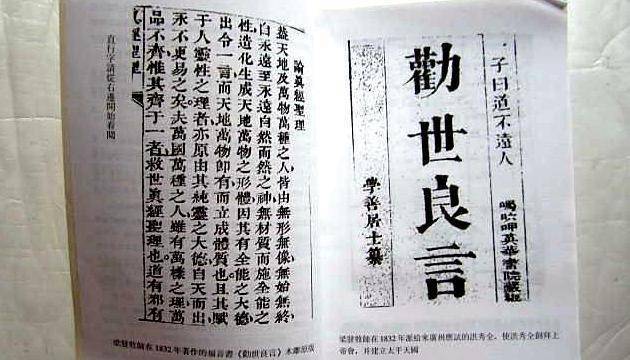 子曰道不遠人
英華書院藏板
勸世良言
學善居士纂
梁發牧師在1832年派給來廣州應試的洪秀全,使洪秀全創拜上
帝會,并建立太平天國
論真經聖理
蓋天地及萬物萬種之人皆由無形無像無始無終
自永遠至永遠自然而然之神無材質而施全能之
性造化生成天地萬物之形體因其有全能之大德
出令一言而天地萬物即有而立成體質也且其賦
于人靈性之理者亦原由其純靈之大德自天而出
永不更易之矣夫萬國萬種之人雖有萬樣之理萬
品不齊惟其齊于一者救世真經聖理也道有邪有
直行字請從右邊開始看閱
梁發牧師在1832年著作的福音書《勸世良言》木雕原版